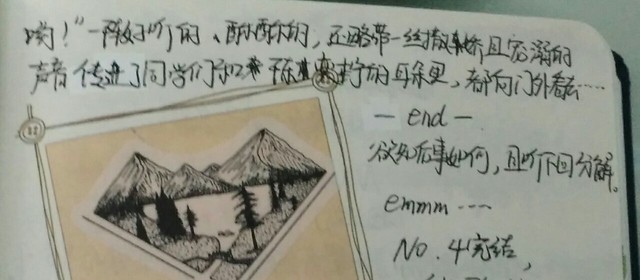 哟！"一阵好听的、酥酥的，还略带一丝撒娇且宠溺的
声音传进了同学们和 的耳朵里，都向门外看去……
— end —
欲知后事如何，且听下回分解。
emmm ----
No. 4完结，
12